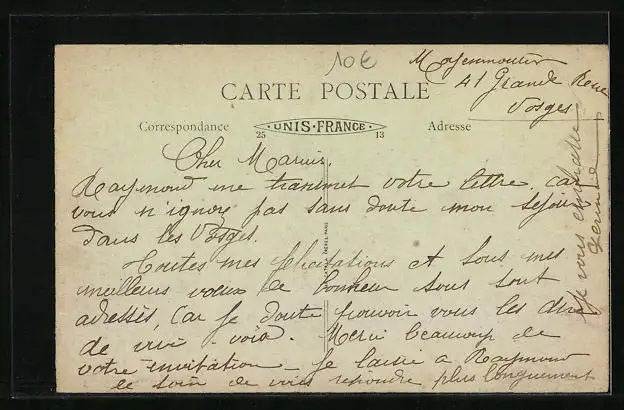 10€
Moyenmoutier
41 Grande Rue
Vosges
CARTE POSTALE
Correspondance
UNIS-FRANCE
25
13
Adresse
Cher Marius,
Raymond me transmet votre lettre, car
vous n'ignorez pas sans doute mon séjour
dans les Vosges.
Toutes mes félicitations et tous mes
meilleurs vœux de bonheur vous sont
adressés, car je doute pouvoir vous les dire
de vive-voix. Merci beaucoup de
votre invitation – je laisse à Raymond
le soin de vous répondre plus longuement
Je vous embrasse